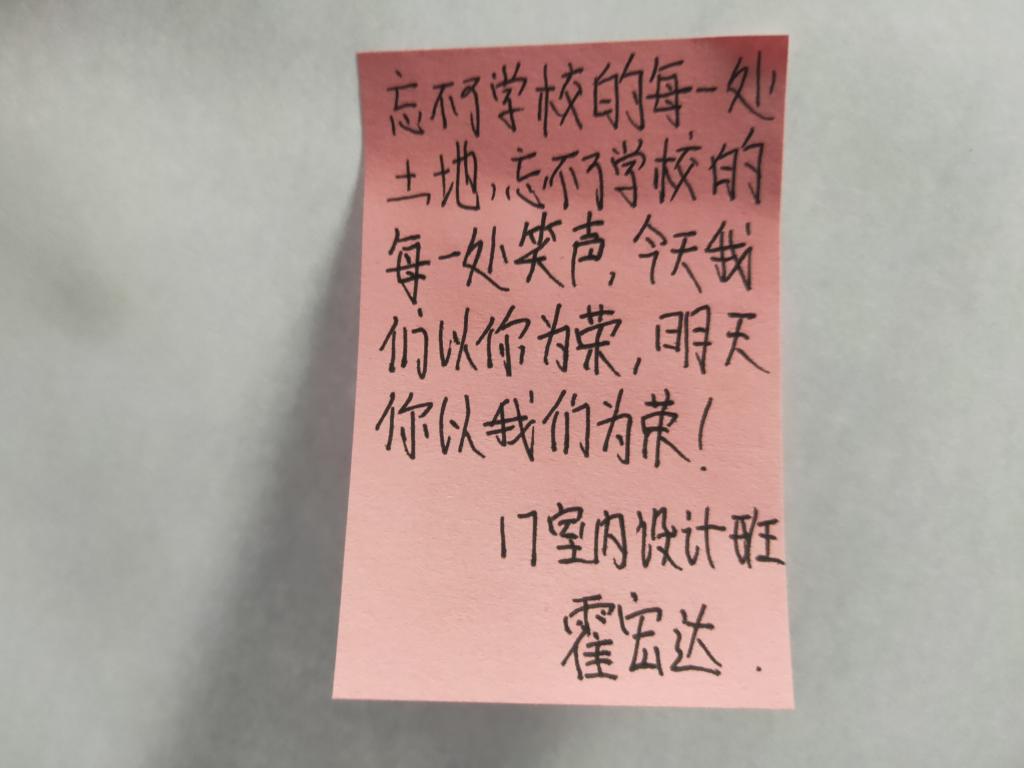 忘不了学校的每一处
土地,忘不了学校的
每一处笑声,今天我
们以你为荣,明天
你以我们为荣!
17室内设计班
霍宏达.